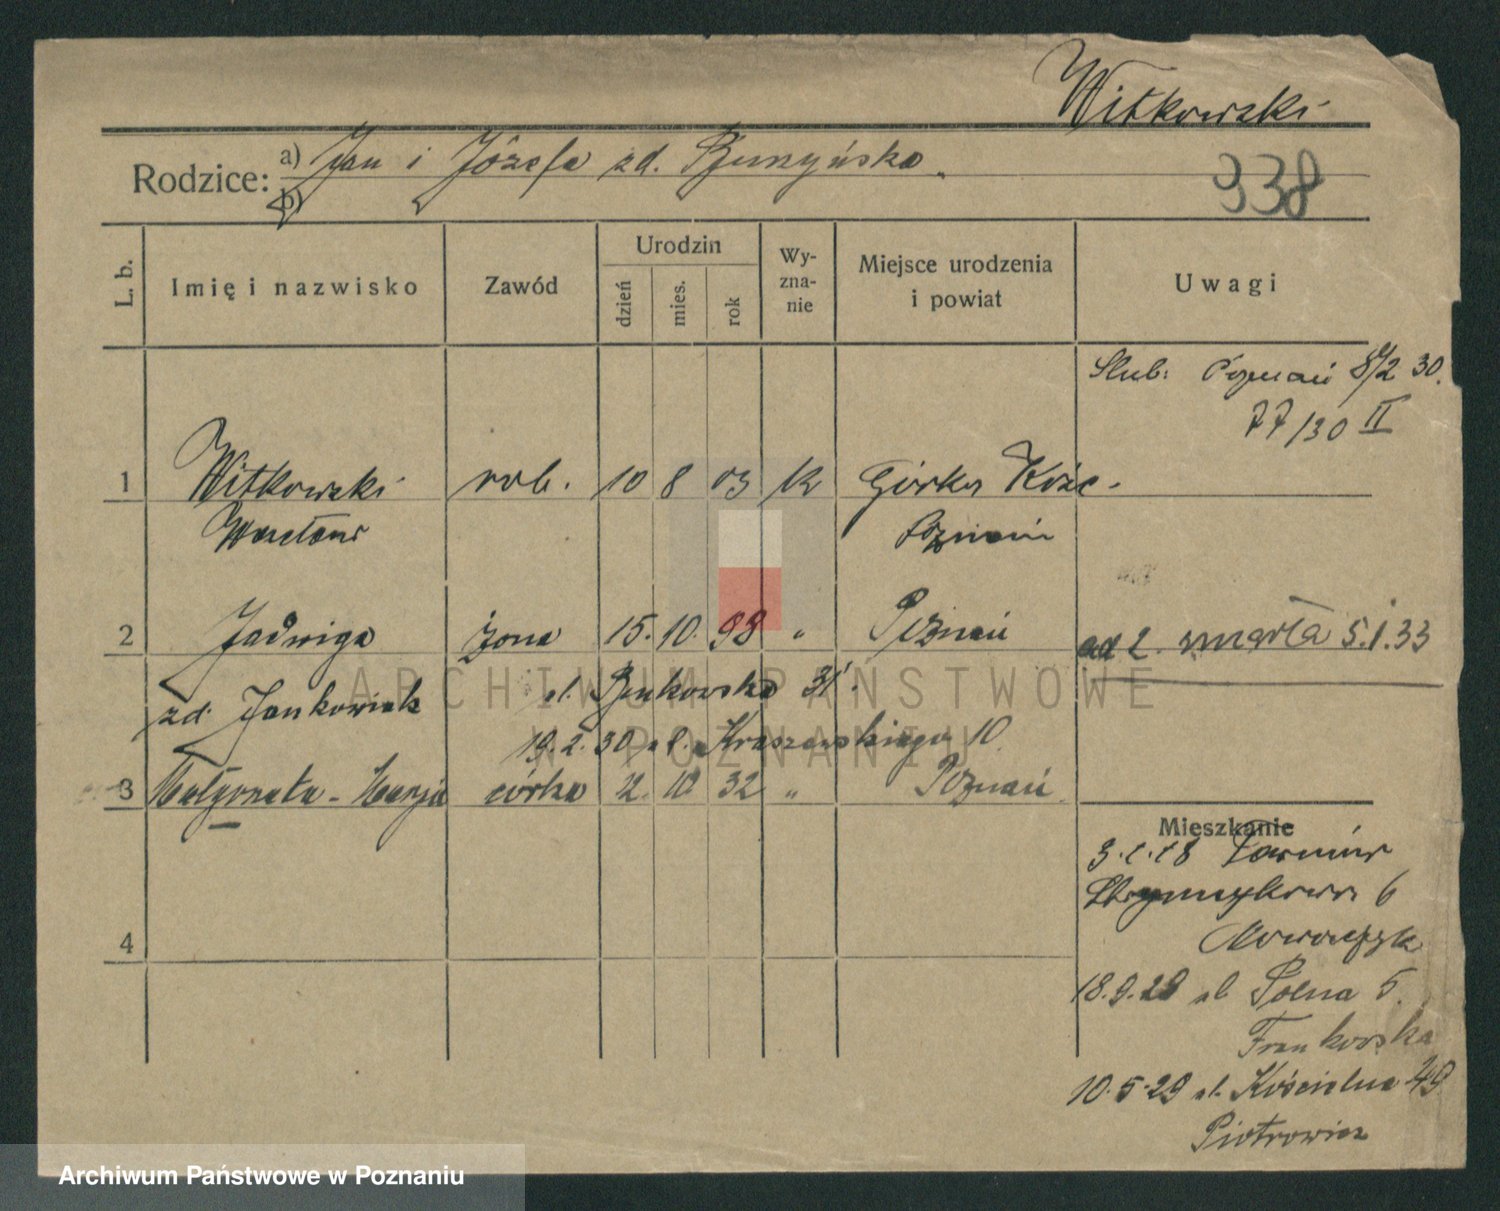 Witkowski
Rodzice: a) Jan i Józefa zd.
b)
938
L. b.
Imię i nazwisko
Zawód
Urodzin
dzień
mies.
rok
Wy-
zna-
nie
Miejsce urodzenia
i powiat
Uwagi
Ślub: Poznań 8/2 30.
77/30 II
1 Witkowski rob. 10 8 03 k Górka
Wacław Poznań
2 Jadwiga żona 15. 10. 98 " Poznań ad 2. zmarła 5.1.33
zd. Jankowiak ul. 31.
19.2.30 ul. Kraszewskiego 10.
3 Małgorzata - Marja córka 2. 10 32 " Poznań
Mieszkanie
6
18.9.28 ul Polna 5.
Frankowska
4
10.5.29 ul. Kościelna 49
Piotrowicz
ARCHIWUM PAŃSTWOWE
W POZNANIU
Archiwum Państwowe w Poznaniu